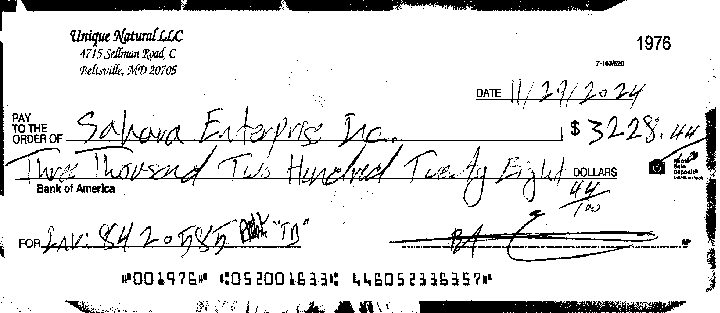 Unique Natural LLC
4715 Sellman Road, C
Beltsville, MD 20705
1976
DATE 11/29/2024
PAY TO THE ORDER OF Sahara Enterprise Inc.
$ 3228.44
Three Thousand Two Hundred Twenty Eight DOLLARS
44/100
Bank of America
FOR INV: 842585 "TB"
⑈001976⑈ ⑆052001633⑆ 446052336357⑈